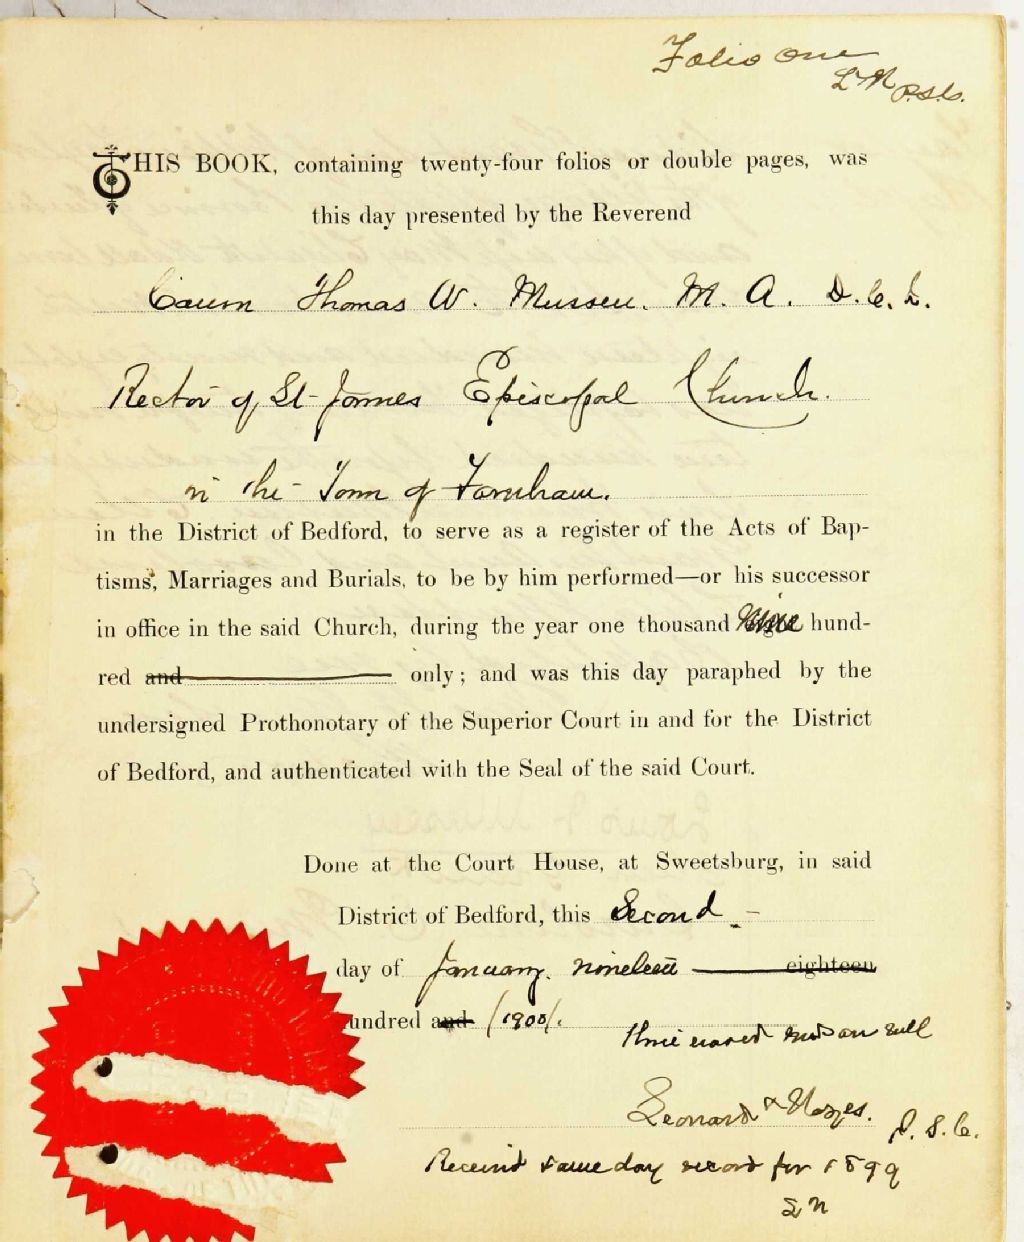 Folio One
L & N P.S.C.
THIS BOOK, containing twenty-four folios or double pages, was
this day presented by the Reverend
Canon Thomas W. Mussen. M. A. D. C. L.
Rector of St James Episcopal Church.
in the Town of Farnham.
in the District of Bedford, to serve as a register of the Acts of Bap-
tisms, Marriages and Burials, to be by him performed—or his successor
in office in the said Church, during the year one thousand Nine hund-
red and only; and was this day paraphed by the
undersigned Prothonotary of the Superior Court in and for the District
of Bedford, and authenticated with the Seal of the said Court.
Done at the Court House, at Sweetsburg, in said
District of Bedford, this Second
day of January. nineteen eighteen
undred and (1900).
Three erased words are null
Leonard & Noyes.
P. S. C.
Received same day record for 1899
L N